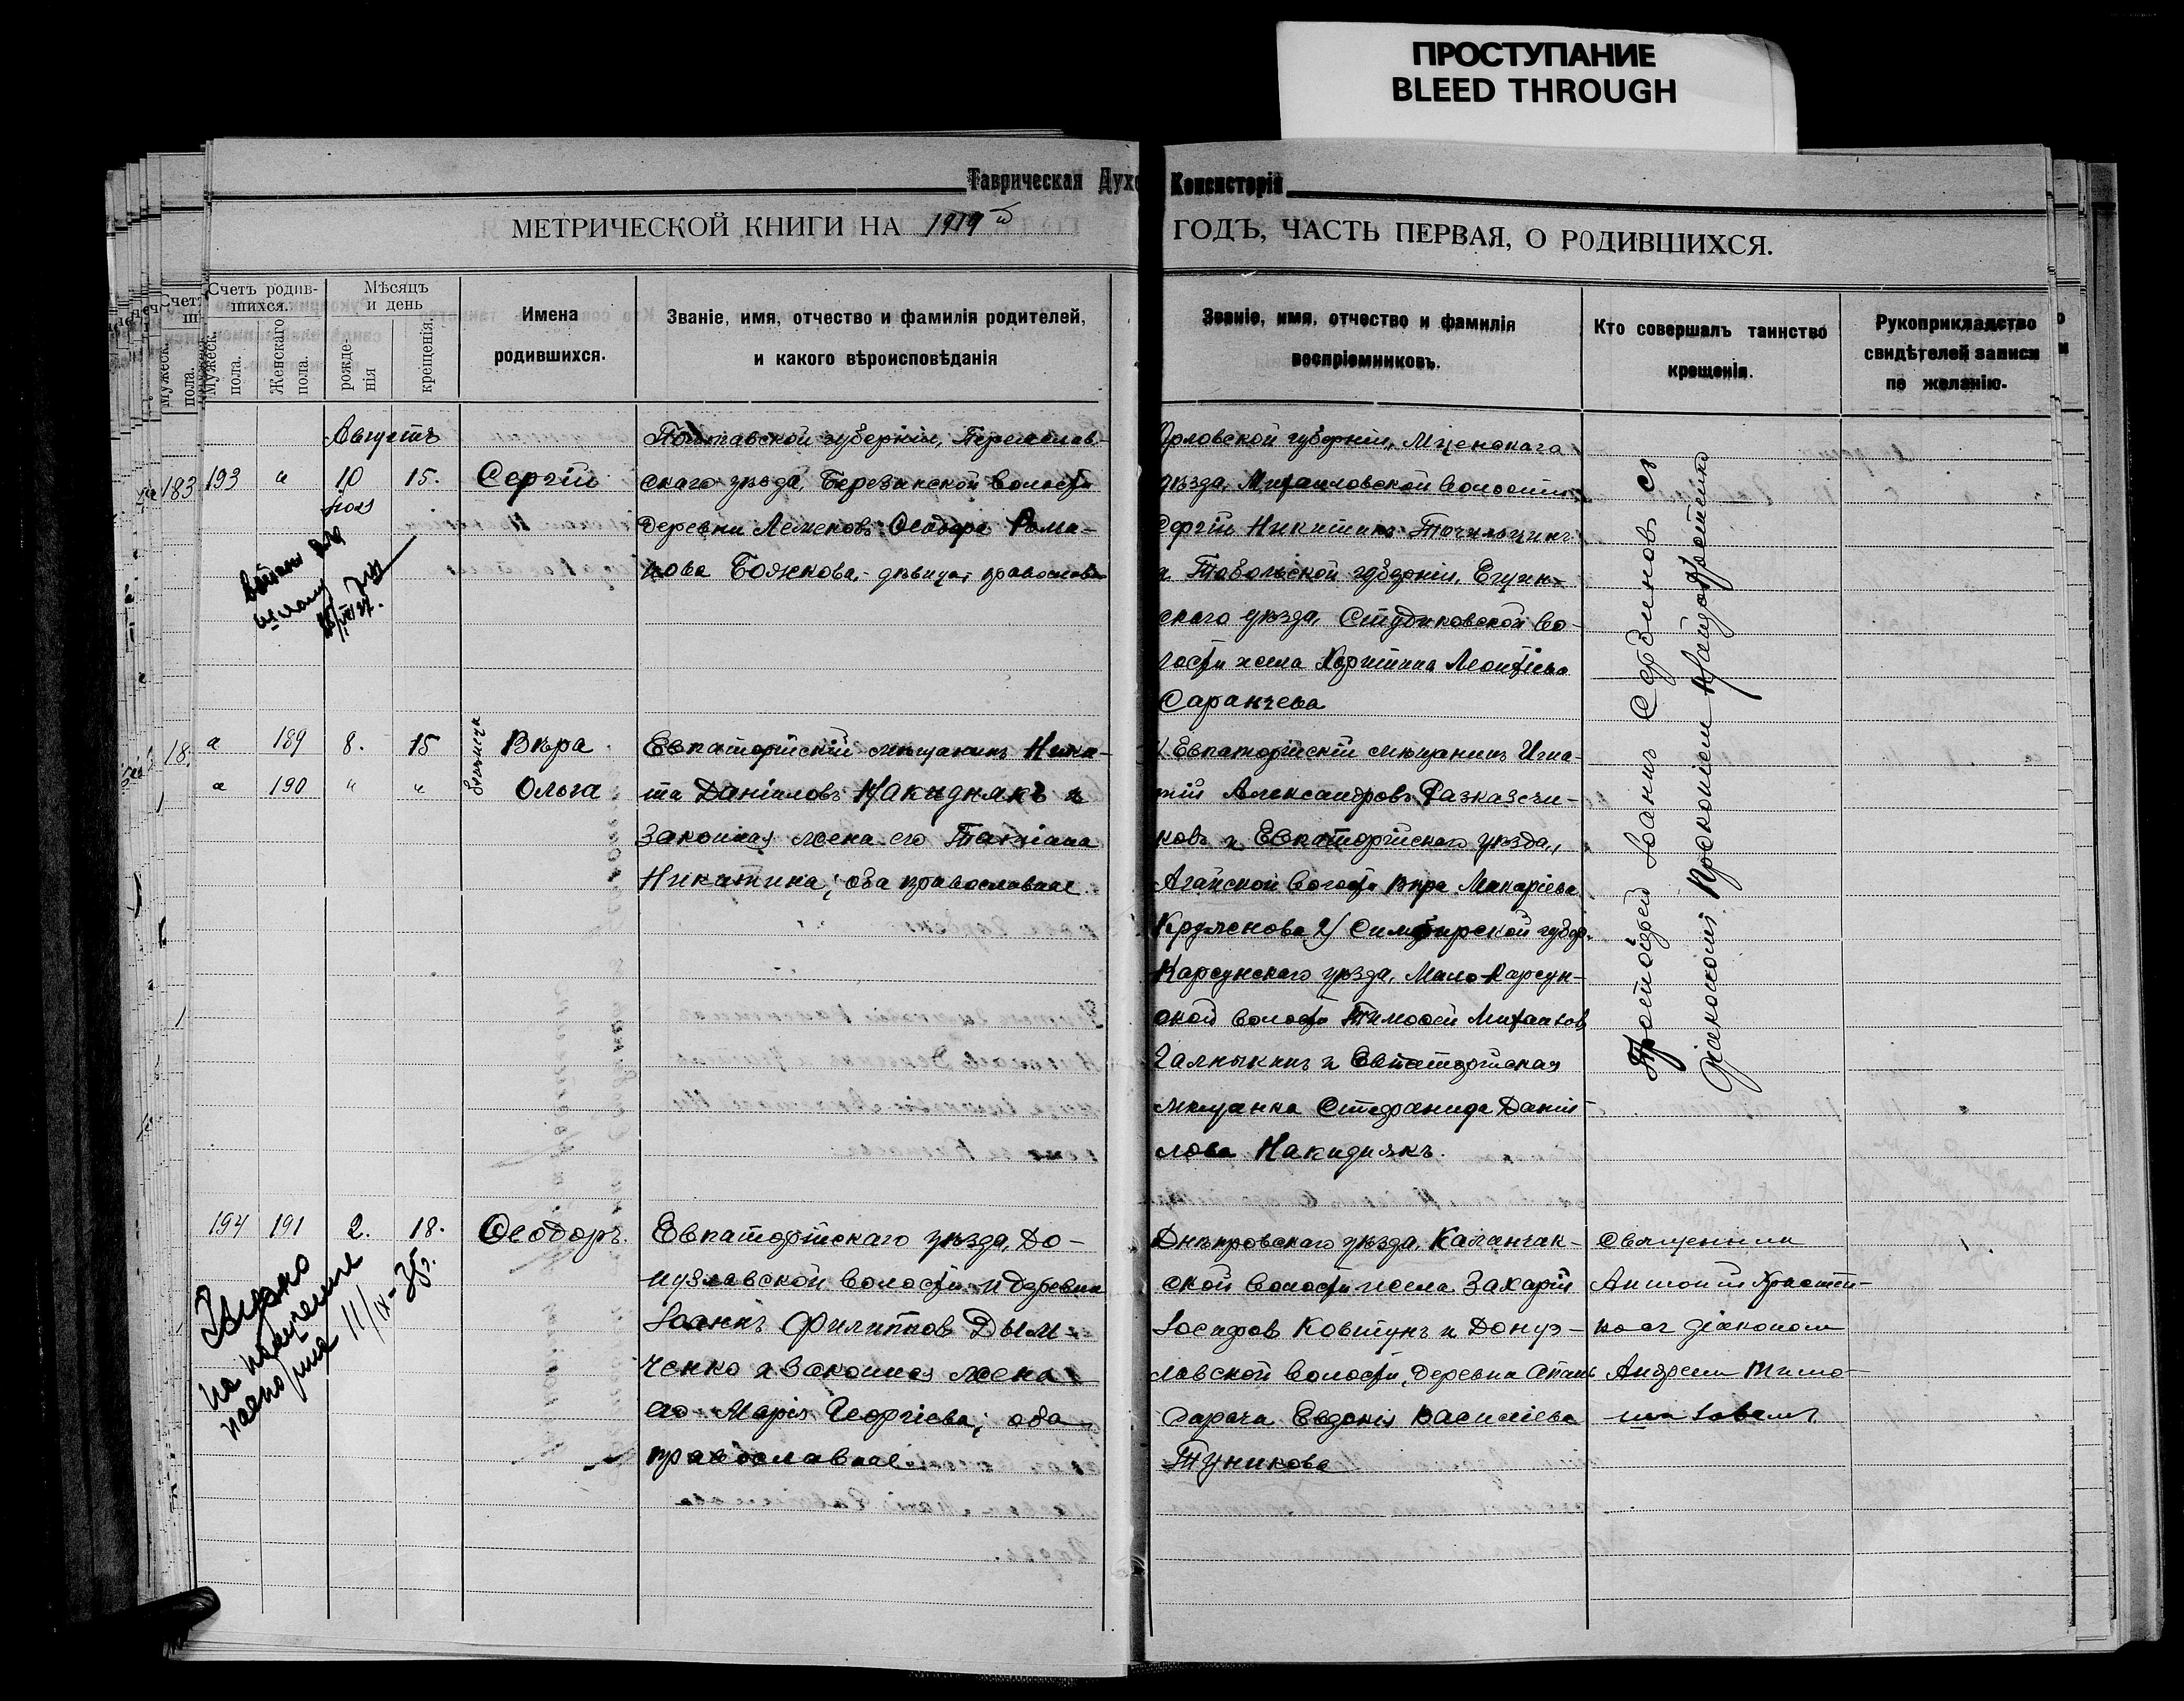 ПРОСТУПАНИЕ
BLEED THROUGH
Таврическая Духо
Консисторія
МЕТРИЧЕСКОЙ КНИГИ НА 1919й
ГОДЪ, ЧАСТЬ ПЕРВАЯ, О РОДИВШИХСЯ.
Счетъ родив-
шихся.
Мужеск.
пола.
Женскаго
пола.
Мѣсяцъ
и день
рожде-
нія
крещенія.
Имена
родившихся.
Званіе, имя, отчество и фамилія родителей,
и какого вѣроисповѣданія
Званіе, имя, отчество и фамилія
воспріемниковъ.
Кто совершалъ таинство
крещенія.
Рукоприкладство
свидѣтелей записи
по желанію.
183
Августъ
193 " 10 15. Сергій
Полтавской губерніи, Переяслав-
скаго уѣзда, Березанской волости
деревни Лемеховъ Ѳеодора Рома-
нова Божкова, - дѣвица, православн
Орловской губерніи, Мценскаго
уѣзда, Михаиловской волости
Сергій Никитинъ Точильщинъ
и Тобольской губерніи,
скаго уѣзда, Студиковской во-
лости села Леонтіева
Саранчева
Протоіерей Іоаннъ Сербиновъ съ
діакономъ Прокопіемъ
18
" 189 8. 15 Вѣра
" 190 " " Ольга
близнецы
Евпаторійскій мѣщанинъ Ники-
та Даніиловъ Накиднякъ и
законная жена его Татіана
Никитина, оба православные
1/ Евпаторійскій мѣщанинъ Игна-
тій Александровъ Разказчи-
ковъ и Евпаторійскаго уѣзда,
Агайской волости Вѣра Макаріева
Круженова 2/ Симбирской губер.
Карсунскаго уѣзда, Мало-Карсун-
ской волости Тимоѳей Михаиловъ
Галныкинъ и Евпаторійская
мѣщанка Стефанида Даніи-
лова Накиднякъ.
194 191 2. 18. Ѳеодоръ.
Евпаторійскаго уѣзда, До-
нузлавской волости и деревни
Іоаннъ Филиппов Дым-
ченко и законная жена
его Марія Георгіева; оба
православные
Днѣпровскаго уѣзда, Каланчак-
ской волости и села Захарій
Іосифов Ковтунъ и Донуз-
лавской волости, деревни Отанъ
Сарача Евдокія Василіева
Туникова
Священникъ
Антоній
діакономъ
Андреем Тимо-
11/IX-35г.